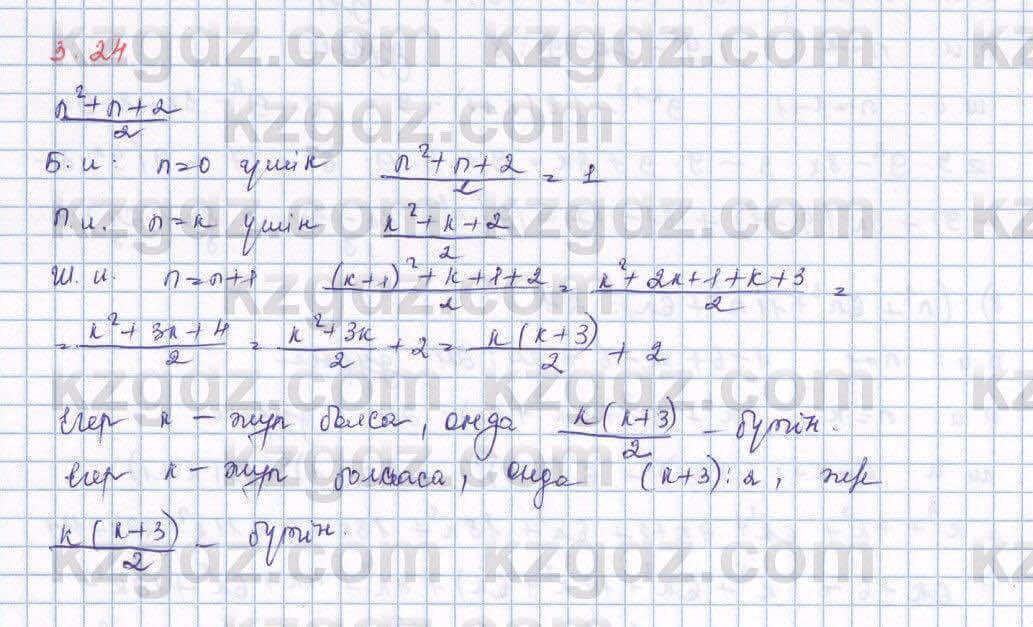 3. 24
n²+n+2 / 2
Б. и. n=0 үшін (n²+n+2)/2 = 1
П.и. n=k үшін (k²+k+2)/2
Ш. и. n=n+1 ((k+1)²+k+1+2)/2 = (k²+2k+1+k+3)/2 =
= (k²+3k+4)/2 = (k²+3k)/2 + 2 = k(k+3)/2 + 2
Егер k – жұп болса, онда k(k+3)/2 – бүтін.
Егер k – жұп болмаса, онда (k+3):2, жер
k(k+3)/2 – бүтін.
kzgdz.com